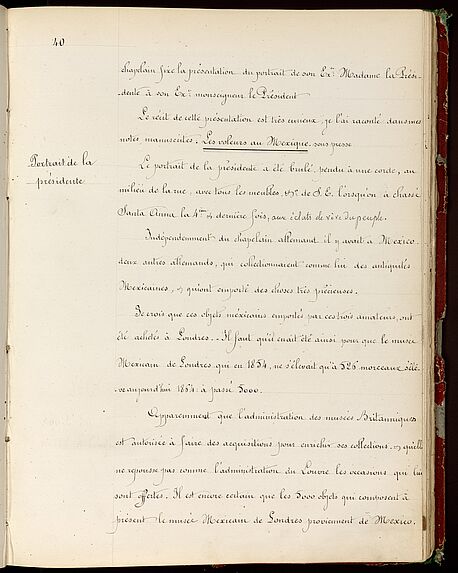 40
chapelain fixe la présentation du portrait de son Ex.ce Madame la Prési-
dente à son Ex.ce monseigneur le Président
Le récit de cette présentation est très curieux, je l'ai raconté dans mes
notes manuscrites. Les voleurs au Mexique. sous presse
Portrait de la
présidente
Le portrait de la présidente a été brulé, pendu à une corde, au
milieu de la rue, avec tous les meubles, de S. E. lorsqu'on a chassé
Santa Anna la 4me & dernière fois, aux éclats de rire du peuple.
Indépendemment du chapelain allemand il y avait à Mexico
deux autres allemands, qui collectionnaient comme lui des antiquités
Mexicaines, & qui ont emporté des choses très précieuses.
Je crois que ces objets mexicains emportés par ces trois amateurs, ont
été achetés à Londres. Il faut qu'il en ait été ainsi pour que le musée
Mexicain de Londres qui en 1854, ne s'élevait qu'à 526 morceaux s'élè-
ve aujourd'hui 1864 à passé 5000.
Apparemment que l'administration des musées Britanniques
est autorisée à faire des acquisitions pour enrichir ses collections, & qu'elle
ne repousse pas comme l'administration du Louvre les occasions qui lui
sont offertes. Il est encore certain que les 5000 objets qui composent à
présent le musée Mexicain de Londres proviennent de Mexico.